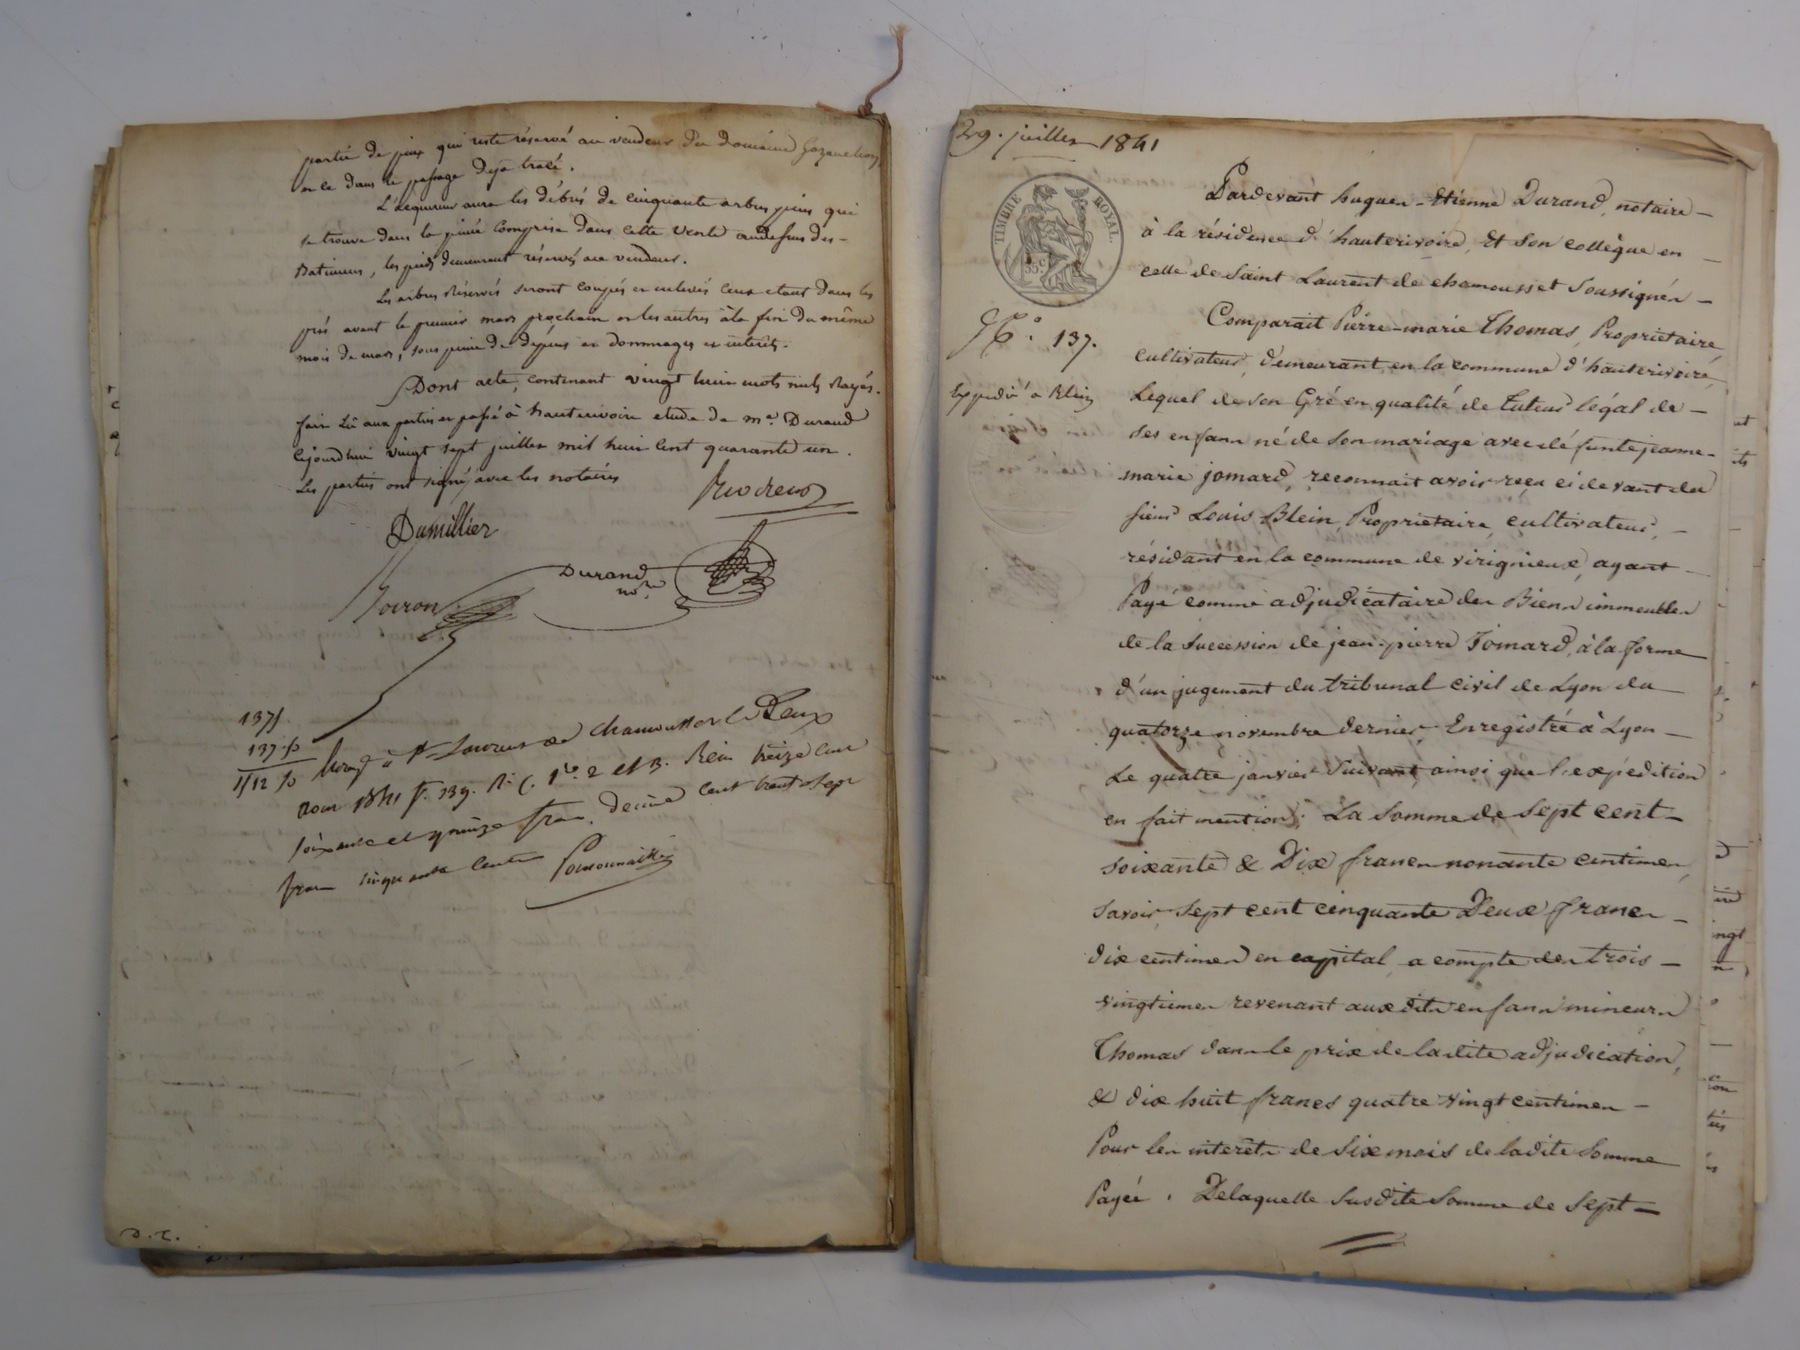 partie de pins qui reste réservé au vendeur du domaine
et ce dans le passage deja tracé.
L'acquereur aura les débris de cinquante arbres pins qui
se trouve dans la pinée comprise dans cette vente audessus des
Batimens, les pieds demeurant réservés aux vendeurs.
Les arbres réservés seront coupés et enlevés ceux etant dans les
prés avant le premier mars prochain et les autres à la fin du même
mois de mars, sous peine de dépens et dommages et intérêts.
Dont acte, contenant vingt huit mots nuls rayés.
fait Lû aux parties et passé à hauterivoire etude de me. Durand
cejourd'hui vingt sept juillet mil huit cent quarante un.
Les parties ont signé, avec les notaires
Dumillier
Durand
nore
Boiron
1375
137.50
1512.50
Enregé à St Laurent de Chamousset le Deux
aout 1841 f. 139. R. C. 1re. 2 et 3. Reçu treize cent
soixante et quinze fran. decime cent trente sept
fran cinquante centes
D. C.
29. juillet 1841
TIMBRE ROYAL.
35 c
No. 137.
Expédié à Blein
Pardevant hugues-Etienne Durand, notaire
à la résidence d'hauterivoire, Et son collègue en
celle de Saint Laurent de chamousset Soussignés
Comparait Pierre-marie Thomas, Propriétaire
cultivateur, demeurant en la commune d'hauterivoire,
Lequel de son Gré en qualité de tuteur légal de
ses enfans né de son mariage avec défunte jeanne-
marie jomard, reconnait avoir reçu ci devant du
sieur Louis Blein, Propriétaire cultivateur,
résidant en la commune de virignieux, ayant
Payé comme adjudicataire des Biens immeubles
de la Succession de jean-pierre Jomard, à la forme
d'un jugement du tribunal civil de Lyon du
quatorze novembre dernier, Enregistré à Lyon
Le quatre janvier Suivant, ainsi que l'expédition
en fait mention; La Somme de Sept cent
soixante & Dix francs nonante centimes,
Savoir, Sept cent cinquante Deux francs
dix centimes en capital, a compte des trois
vingtiemes revenant aux dits enfans mineurs
Thomas dans le prix de ladite adjudication,
& dix huit francs quatre vingt centimes
Pour les intérêts de Six mois de ladite Somme
Payée. Delaquelle Susdite Somme de Sept